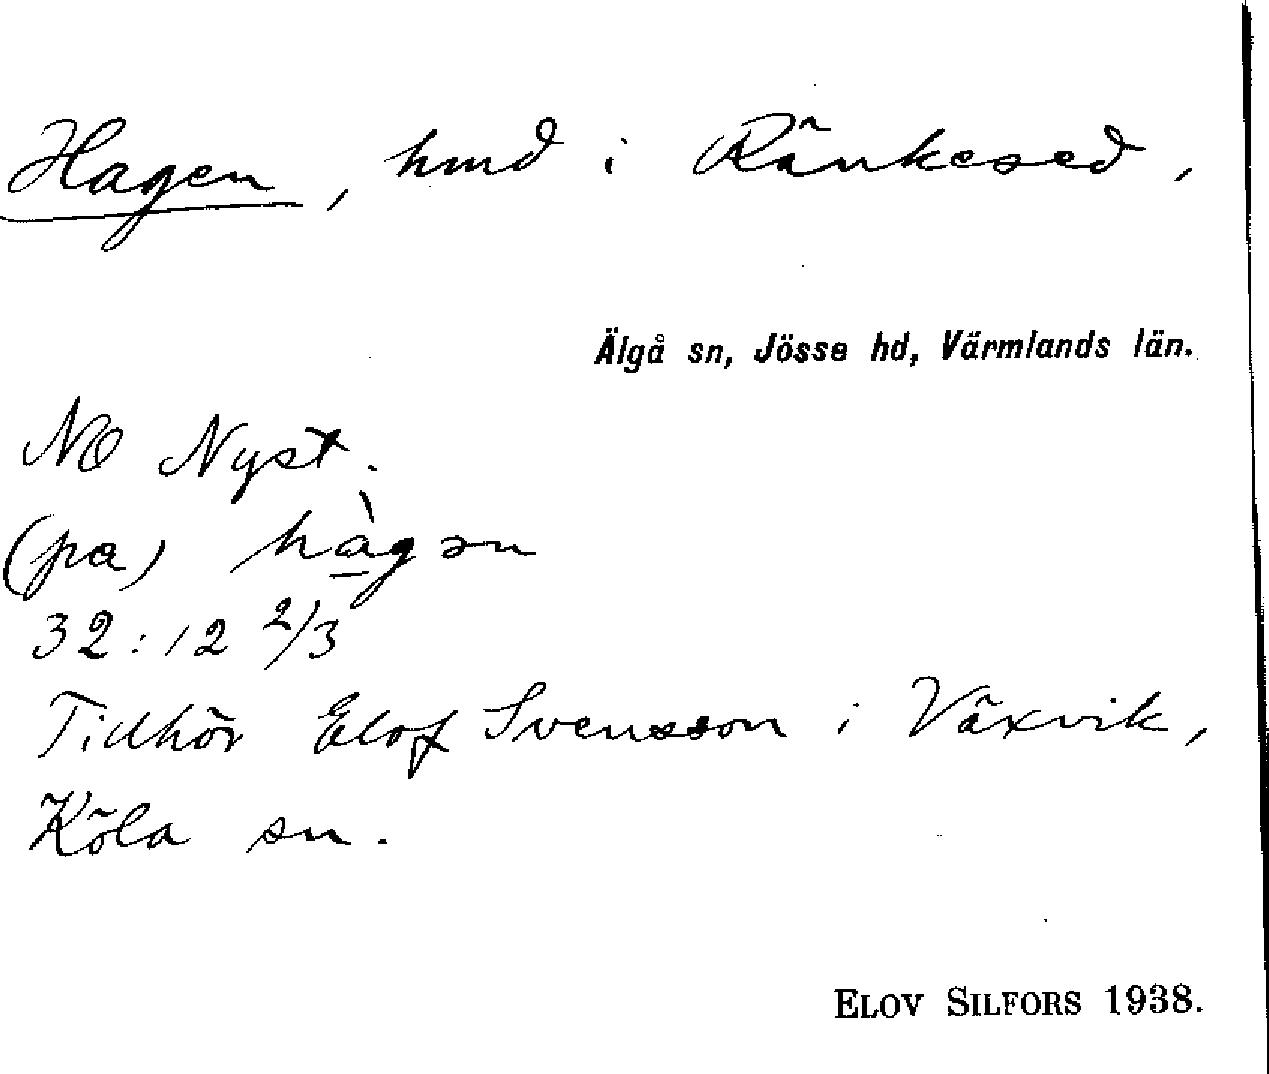 Hagen, hmd i Ränkesed,
Älgå sn, Jösse hd, Värmlands län.
NO Nyst.
(pa) hàgən
32:12 2/3
Tillhör Elof Svensson i Växvik,
Köla sn.
ELOV SILFORS 1938.